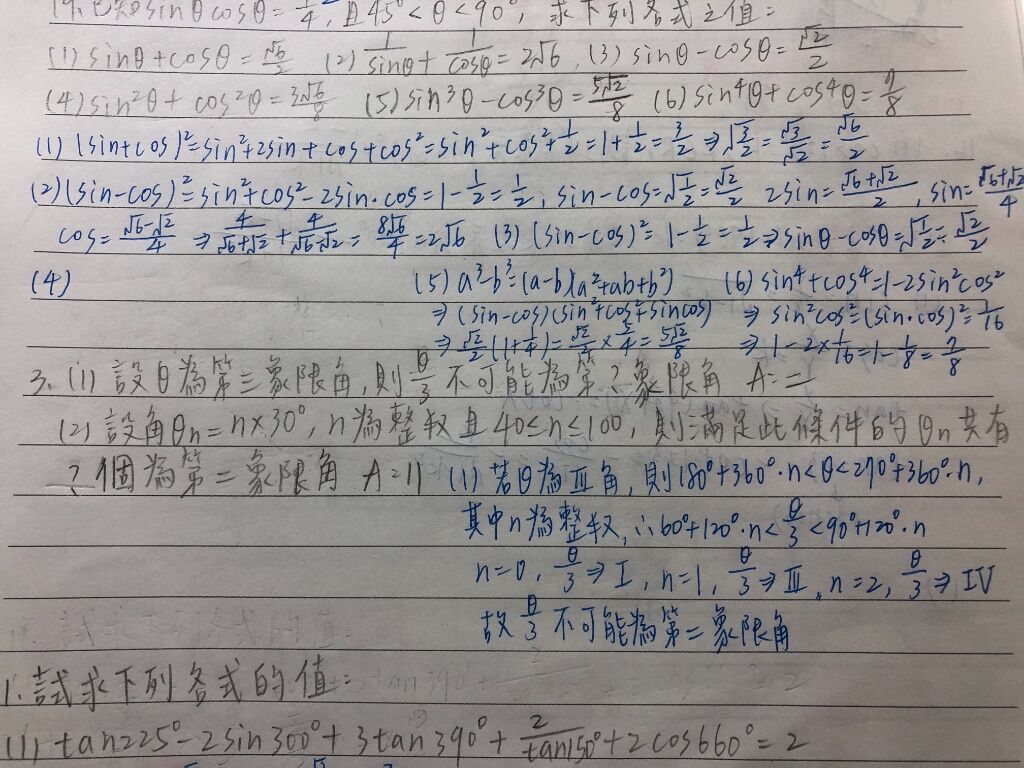 19.已知sinθcosθ=1/4,且45°<θ<90°,求下列各式之值:
(1) sinθ+cosθ=√6/2 (2) 1/sinθ+1/cosθ=2√6, (3) sinθ-cosθ=√2/2
(4) sin²θ+cos²θ=3√6/8 (5) sin³θ-cos³θ=5√2/8 (6) sin⁴θ+cos⁴θ=7/8
(1) (sin+cos)²=sin²+2sin+cos+cos²=sin²+cos²+1/2=1+1/2=3/2⇒√3/2=√3/√2=√6/2
(2)(sin-cos)²=sin²+cos²-2sin·cos=1-1/2=1/2, sin-cos=√1/2=√2/2 2sin=√6+√2/2, sin=√6+√2/4
cos=√6-√2/4 ⇒4/√6+√2+4/√6-√2=8√6/4=2√6 (3) (sin-cos)²=1-1/2=1/2⇒sinθ-cosθ=√1/2=√2/2
(4) (5) a³-b³=(a-b)(a²+ab+b²) (6) sin⁴+cos⁴=1-2sin²cos²
⇒(sin-cos)(sin²+cos²+sincos) ⇒sin²cos²=(sin·cos)²=1/16
⇒√2/2(1+1/4)=√2/2×5/4=5√2/8 ⇒1-2×1/16=1-1/8=7/8
3. (1) 設θ為第三象限角,則θ/3不可能為第?象限角 A=二
(2) 設角θn=n×30°, n為整數且40≤n≤100,則滿足此條件的θn共有
?個為第二象限角 A=11 (1) 若θ為Ⅲ角,則180°+360°·n<θ<270°+360°·n,
其中n為整數,∴60°+120°·n<θ/3<90°+120°·n
n=0, θ/3⇒Ⅰ, n=1, θ/3⇒Ⅲ, n=2, θ/3⇒Ⅳ
故θ/3不可能為第二象限角
1.試求下列各式的值:
(1) tan225°-2sin300°+3tan390°+2/tan150°+2cos660°=2